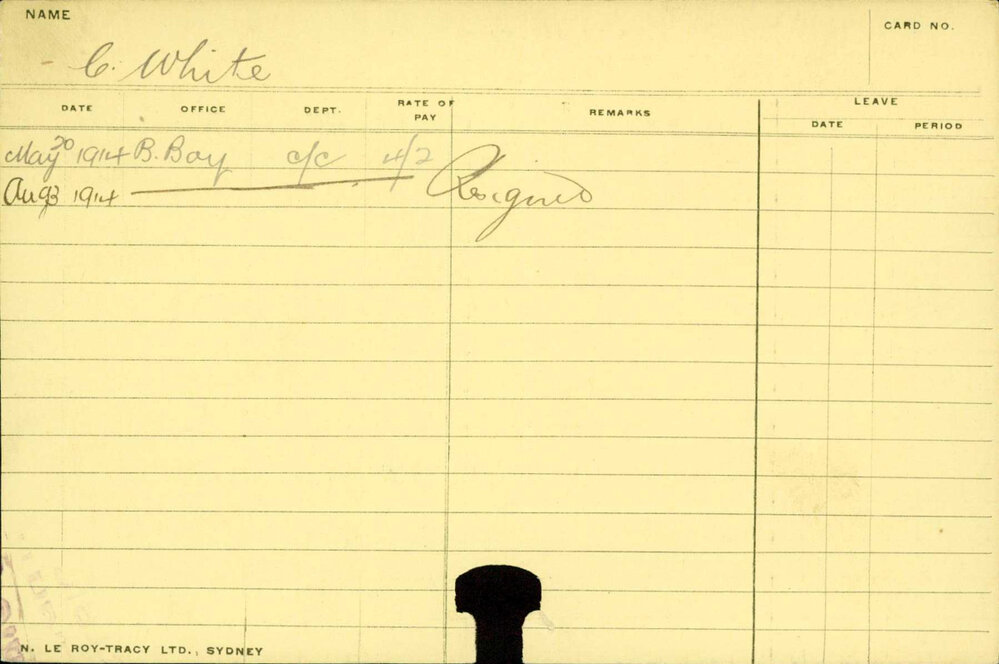 NAME
CARD NO.
C. White
DATE OFFICE DEPT. RATE OF PAY REMARKS LEAVE
DATE PERIOD
May 20 1914 B. Bay c/c 4/2
Aug 3 1914 Resigned
N. LE ROY-TRACY LTD., SYDNEY